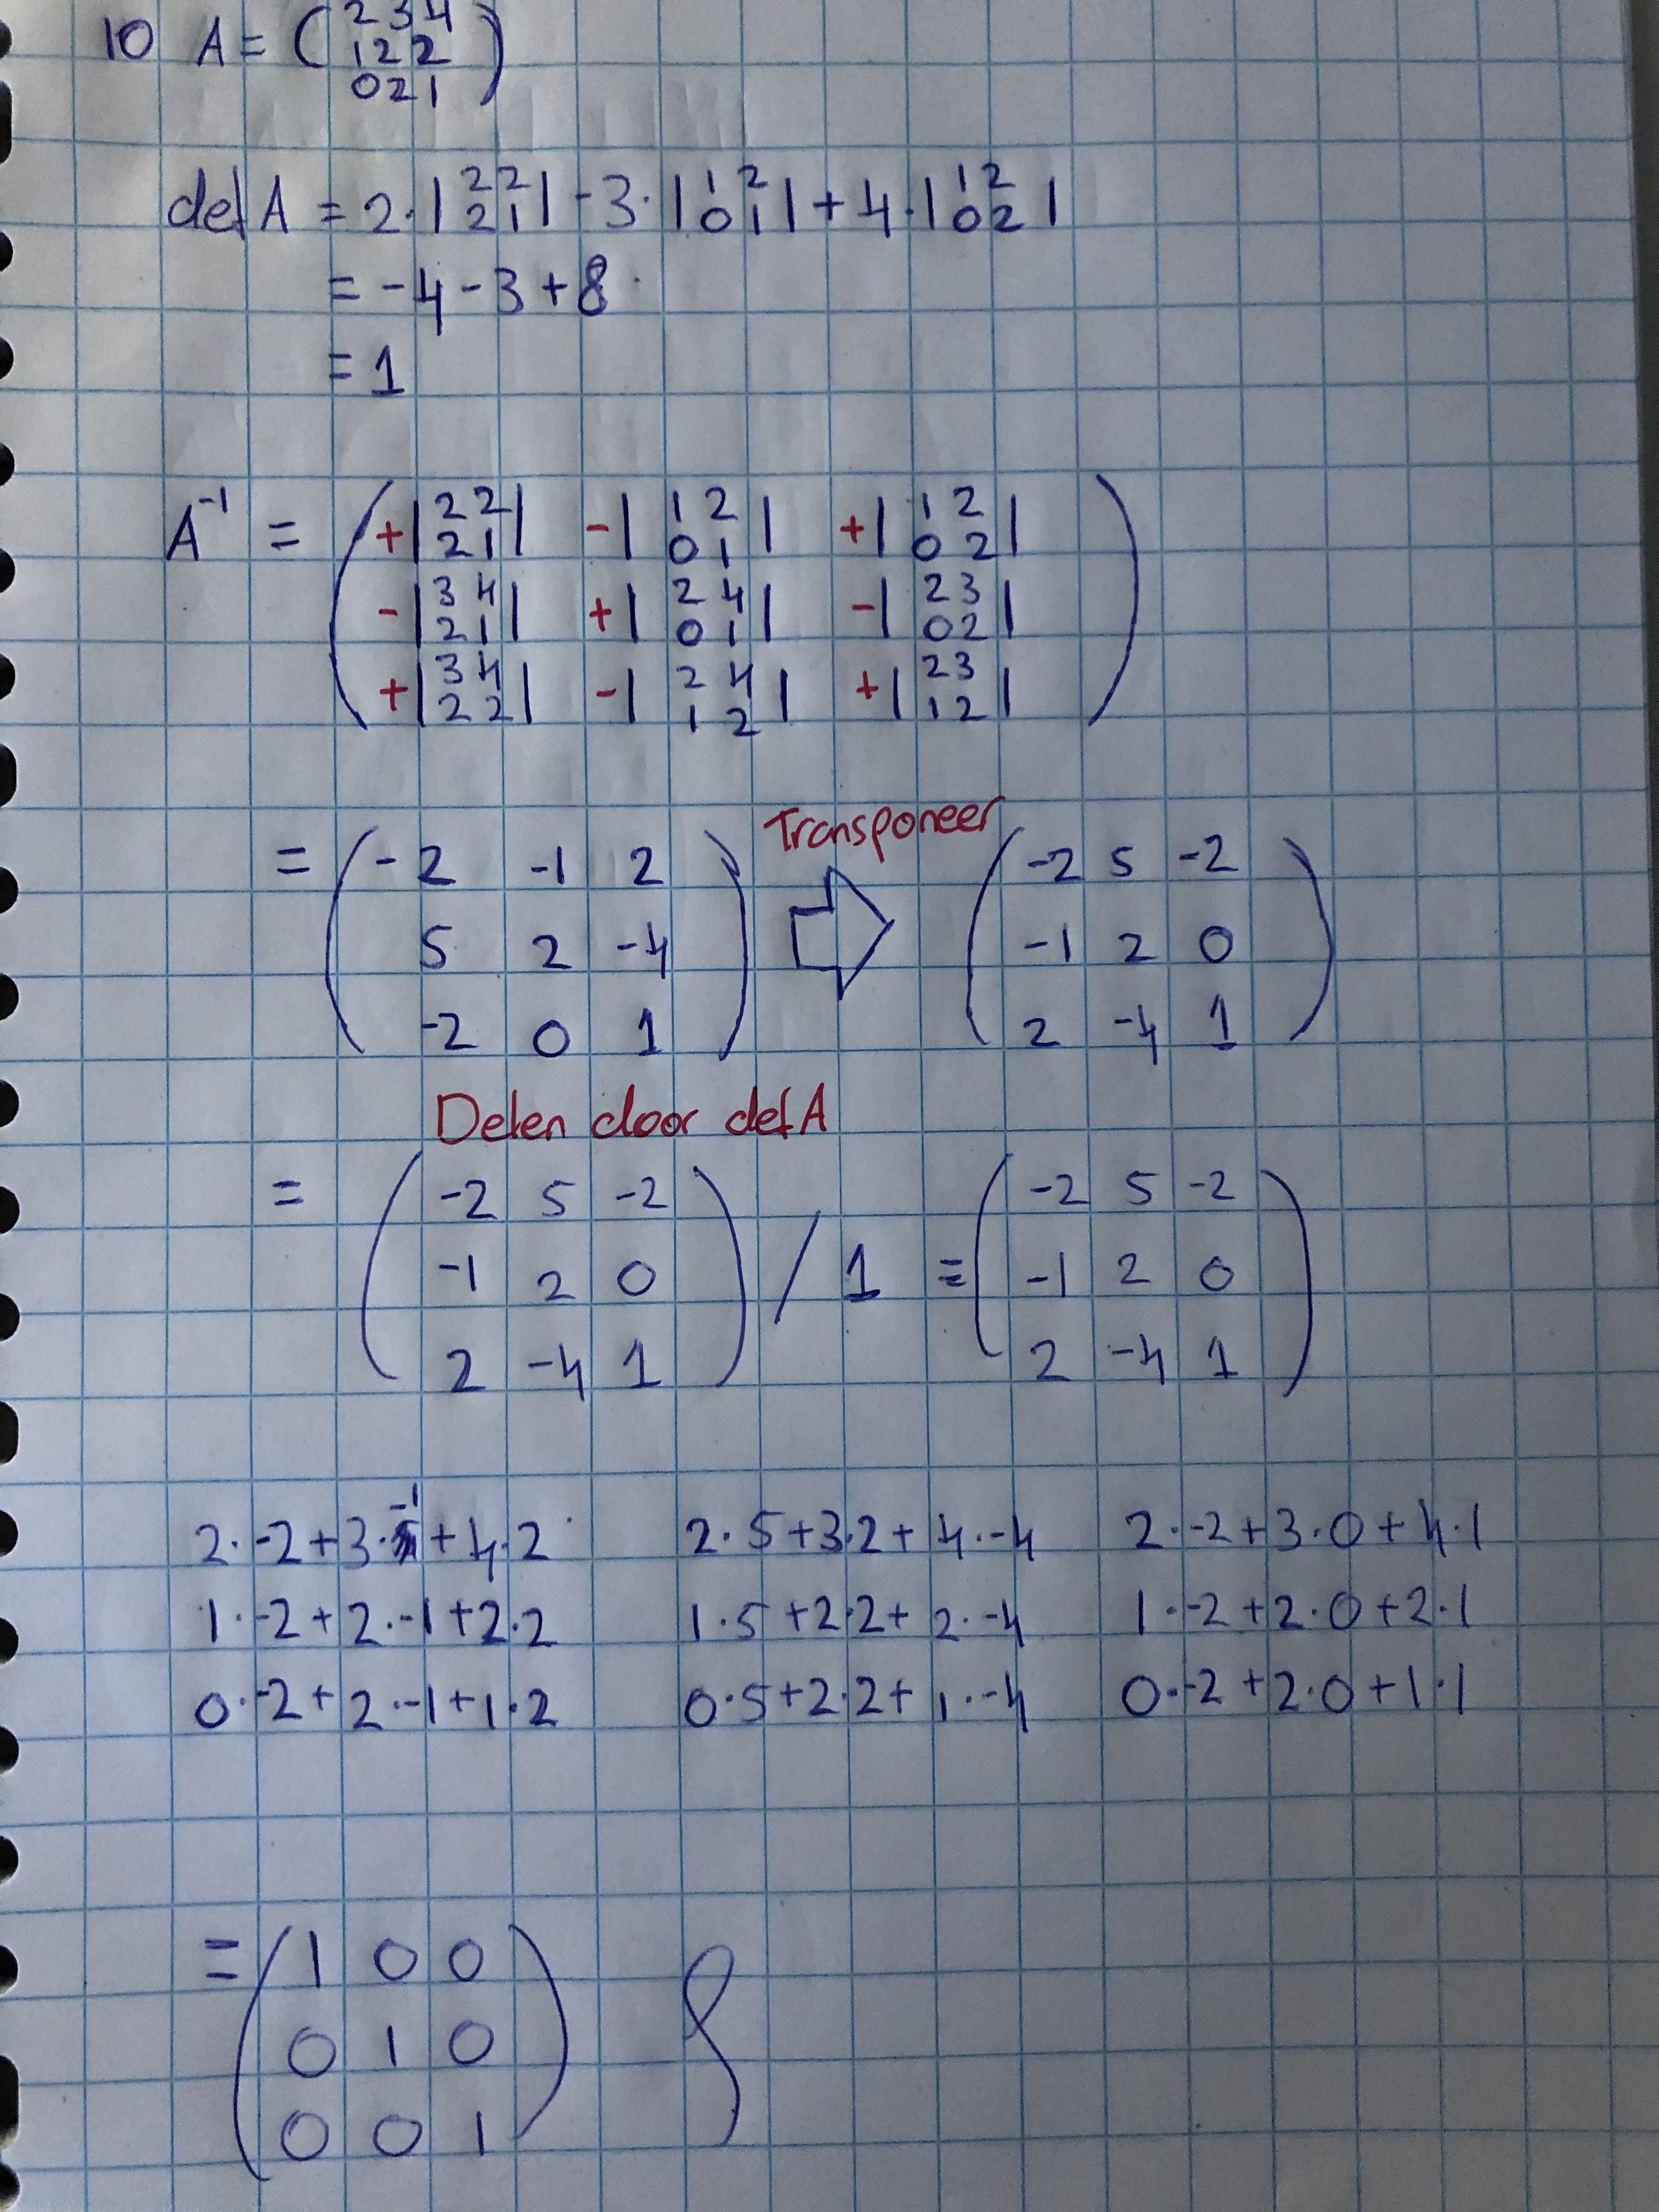 10 A = ( 2 3 4
1 2 2
0 2 1 )
det A = 2·| 2 2 | - 3·| 1 2 | + 4·| 1 2 |
2 1 0 1 0 2
= -4 - 3 + 8
= 1
A⁻¹ = ( +| 2 2 | -| 1 2 | +| 1 2 |
2 1 0 1 0 2
-| 3 4 | +| 2 4 | -| 2 3 |
2 1 0 1 0 2
+| 3 4 | -| 2 4 | +| 2 3 | )
2 2 1 2 1 2
Transponeer
= ( -2 -1 2 ⇨ ( -2 5 -2
5 2 -4 -1 2 0
-2 0 1 ) 2 -4 1 )
Delen door det A
= ( -2 5 -2 ( -2 5 -2
-1 2 0 / 1 = -1 2 0
2 -4 1 ) 2 -4 1 )
2·-2+3·-1+4·2 2·5+3·2+4·-4 2·-2+3·0+4·1
1·-2+2·-1+2·2 1·5+2·2+2·-4 1·-2+2·0+2·1
0·-2+2·-1+1·2 0·5+2·2+1·-4 0·-2+2·0+1·1
= ( 1 0 0
0 1 0
0 0 1 )